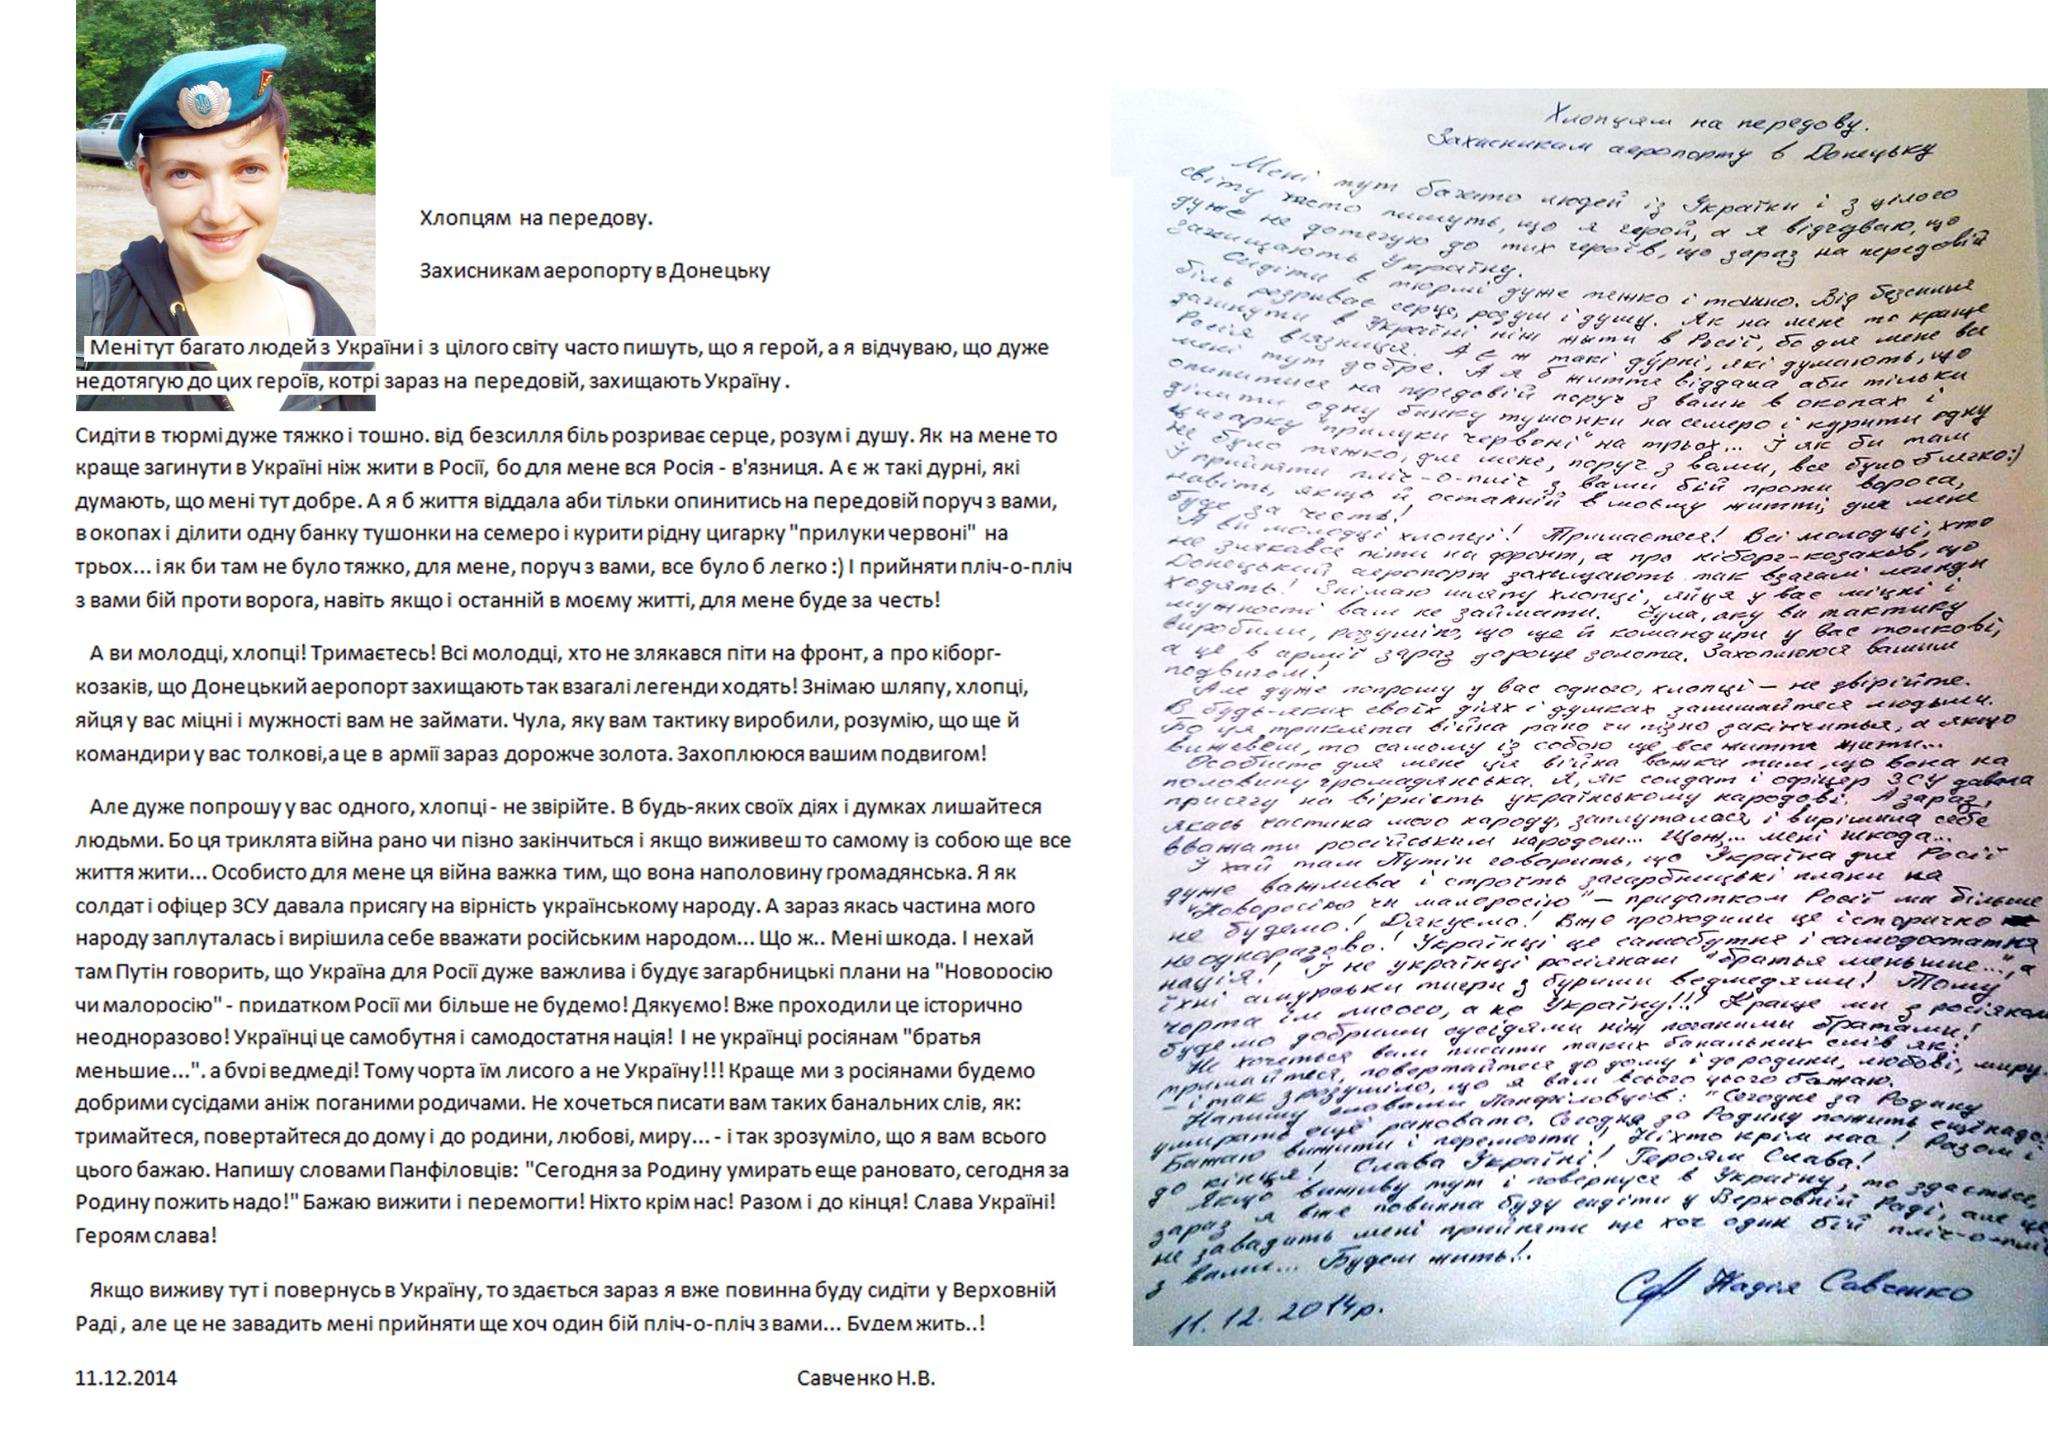 Хлопцям на передову.
Захисникам аеропорту в Донецьку
Мені тут багато людей з України і з цілого світу часто пишуть, що я герой, а я відчуваю, що дуже
недотягую до цих героїв, котрі зараз на передовій, захищають Україну .
Сидіти в тюрмі дуже тяжко і тошно. від безсилля біль розриває серце, розум і душу. Як на мене то
краще загинути в Україні ніж жити в Росії, бо для мене вся Росія - в'язниця. А є ж такі дурні, які
думають, що мені тут добре. А я б життя віддала аби тільки опинитись на передовій поруч з вами,
в окопах і ділити одну банку тушонки на семеро і курити рідну цигарку "прилуки червоні" на
трьох... і як би там не було тяжко, для мене, поруч з вами, все було б легко :) І прийняти пліч-о-пліч
з вами бій проти ворога, навіть якщо і останній в моєму житті, для мене буде за честь!
А ви молодці, хлопці! Тримаєтесь! Всі молодці, хто не злякався піти на фронт, а про кіборг-
козаків, що Донецький аеропорт захищають так взагалі легенди ходять! Знімаю шляпу, хлопці,
яйця у вас міцні і мужності вам не займати. Чула, яку вам тактику виробили, розумію, що ще й
командири у вас толкові,а це в армії зараз дорожче золота. Захоплююся вашим подвигом!
Але дуже попрошу у вас одного, хлопці - не звірійте. В будь-яких своїх діях і думках лишайтеся
людьми. Бо ця триклята війна рано чи пізно закінчиться і якщо виживеш то самому із собою ще все
життя жити... Особисто для мене ця війна важка тим, що вона наполовину громадянська. Я як
солдат і офіцер ЗСУ давала присягу на вірність українському народу. А зараз якась частина мого
народу заплуталась і вирішила себе вважати російським народом... Що ж.. Мені шкода. І нехай
там Путін говорить, що Україна для Росії дуже важлива і будує загарбницькі плани на "Новоросію
чи малоросію" - придатком Росії ми більше не будемо! Дякуємо! Вже проходили це історично
неодноразово! Українці це самобутня і самодостатня нація! І не українці росіянам "братья
меньшие...", а бурі ведмеді! Тому чорта їм лисого а не Україну!!! Краще ми з росіянами будемо
добрими сусідами аніж поганими родичами. Не хочеться писати вам таких банальних слів, як:
тримайтеся, повертайтеся до дому і до родини, любові, миру... - і так зрозуміло, що я вам всього
цього бажаю. Напишу словами Панфіловців: "Сегодня за Родину умирать еще рановато, сегодня за
Родину пожить надо!" Бажаю вижити і перемогти! Ніхто крім нас! Разом і до кінця! Слава Україні!
Героям слава!
Якщо виживу тут і повернусь в Україну, то здається зараз я вже повинна буду сидіти у Верховній
Раді , але це не завадить мені прийняти ще хоч один бій пліч-о-пліч з вами... Будем жить..!
11.12.2014 Савченко Н.В.
Хлопцям на передову.
Захисникам аеропорту в Донецьку
Мені тут багато людей із України і з цілого
світу часто пишуть, що я герой, а я відчуваю, що
дуже не дотягую до тих героїв, що зараз на передовій
захищають Україну.
Сидіти в тюрмі дуже тяжко і тошно. Від безсилля
біль розриває серце, розум і душу. Як на мене то краще
загинути в Україні ніж жити в Росії, бо для мене вся
Росія в'язниця. А є ж такі дурні, які думають, що
мені тут добре. А я б життя віддала аби тільки
опинитися на передовій поруч з вами в окопах і
ділити одну банку тушонки на семеро і курити одну
цигарку "прилуки червоні" на трьох... І як би там
не було тяжко, для мене, поруч з вами, все було б легко:)
І прийняти пліч-о-пліч з вами бій проти ворога,
навіть, якщо й останній в моєму житті, для мене
буде за честь!
А ви молодці хлопці! Тримаєтеся! Всі молодці, хто
не злякався піти на фронт, а про кіборг-козаків, що
Донецький аеропорт захищають так взагалі легенди
ходять! Знімаю шляпу хлопці, яйця у вас міцні і
мужності вам не займати. Чула, яку ви тактику
виробили, розумію, що ще й командири у вас толкові,
а це в армії зараз дороще золота. Захоплююся вашим
подвигом!
Але дуже попрошу у вас одного, хлопці – не звірійте.
В будь-яких своїх діях і думках залишайтеся людьми.
Бо ця триклята війна рано чи пізно закінчиться, а якщо
виживеш, то самому із собою ще все життя жити...
Особисто для мене ця війна важка тим, що вона на
половину громадянська. Я, як солдат і офіцер ЗСУ давала
присягу на вірність українському народові. А зараз,
якась частина мого народу, заплуталася і вирішила себе
вважати російським народом... Що ж... мені шкода...
І хай там Путін говорить, що Україна для Росії
дуже важлива і строїть загарбницькі плани на
"Новоросію чи малоросію" – придатком Росії ми більше
не будемо! Дякуємо! Вже проходили це історично
неодноразово! Українці це самобутня і самодостатня
нація! І не українці росіянам "братья меньшие...", а
їхні амурські тигри з бурими ведмедями! Тому
чорта їм лисого, а не Україну!!! Краще ми з росіянами
будемо добрими сусідями ніж поганими братами!
Не хочеться вам писати таких банальних слів як:
тримайтеся, повертайтеся до дому і до родини, любові, миру.
– і так зрозуміло, що я вам всього цього бажаю.
Напишу словами Панфіловців: "Сегодне за Родину
умирать ещё рановато. Сегодня за Родину пожить ещё надо!
Бажаю вижити і перемогти! Ніхто крім нас! Разом і
до кінця! Слава Україні! Героям Слава!
Якщо виживу тут і повернуся в Україну, то здається,
зараз я вже повинна буду сидіти у Верховній Раді, але це
не завадить мені прийняти ще хоч один бій пліч-о-пліч
з вами... Будем жить!.
Надія Савченко
11.12.2014р.